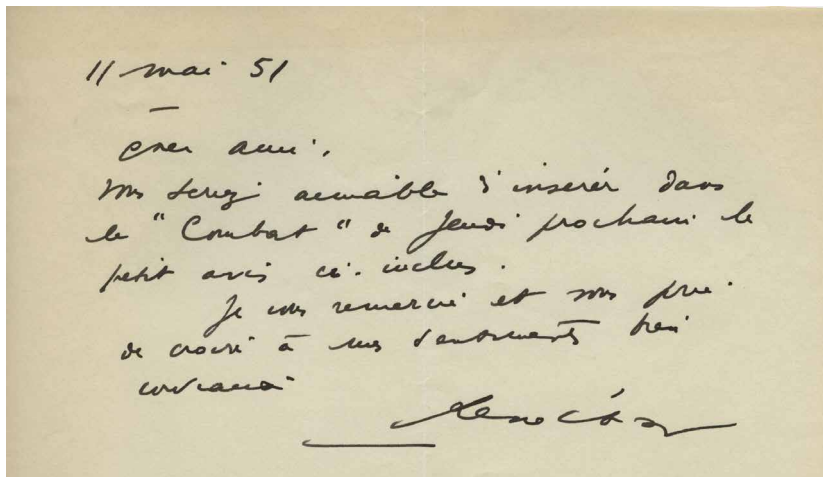 11 mai 51
Cher ami,
Vous seriez aimable d'insérer dans
le "Combat" de Jeudi prochain le
petit avis ci-inclus.
Je vous remercie et vous prie
de croire à mes sentiments bien
cordiaux
René Char